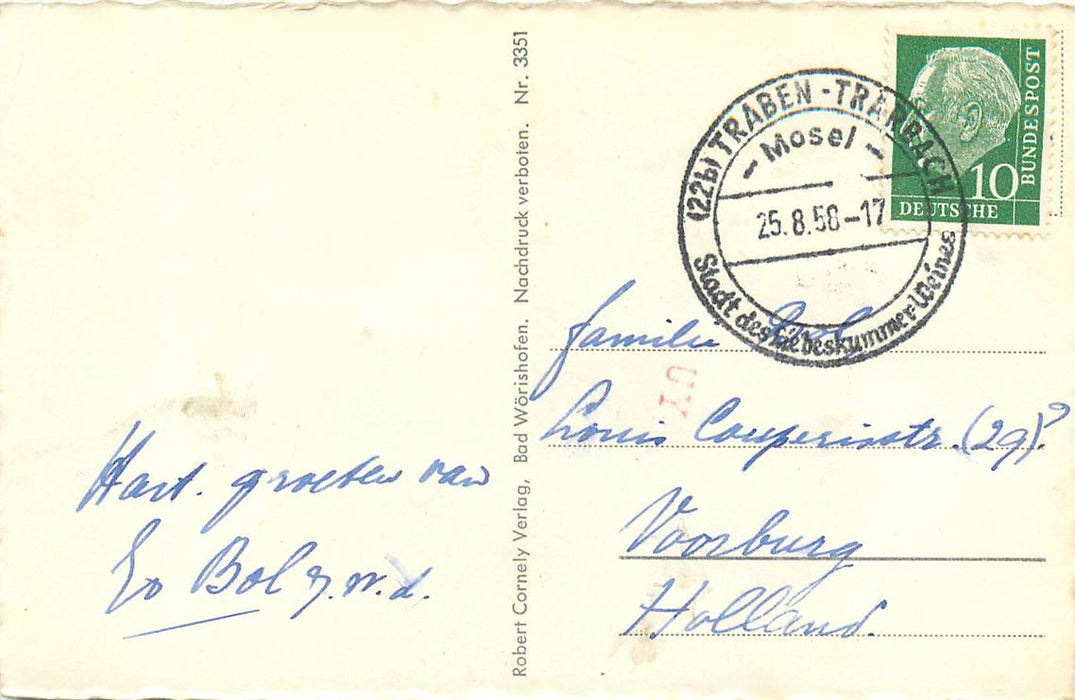 Hart. groeten van
Bol
Robert Cornely Verlag, Bad Wörishofen. Nachdruck verboten. Nr. 3351
(22b) TRABEN-TRARBACH
- Mosel -
25.8.58-17
Stadt des Liebeskummer-Weines
10
BUNDESPOST
DEUTSCHE
UY
familie Bol
Louis Couperisstr. (29)?
Voorburg
Holland.